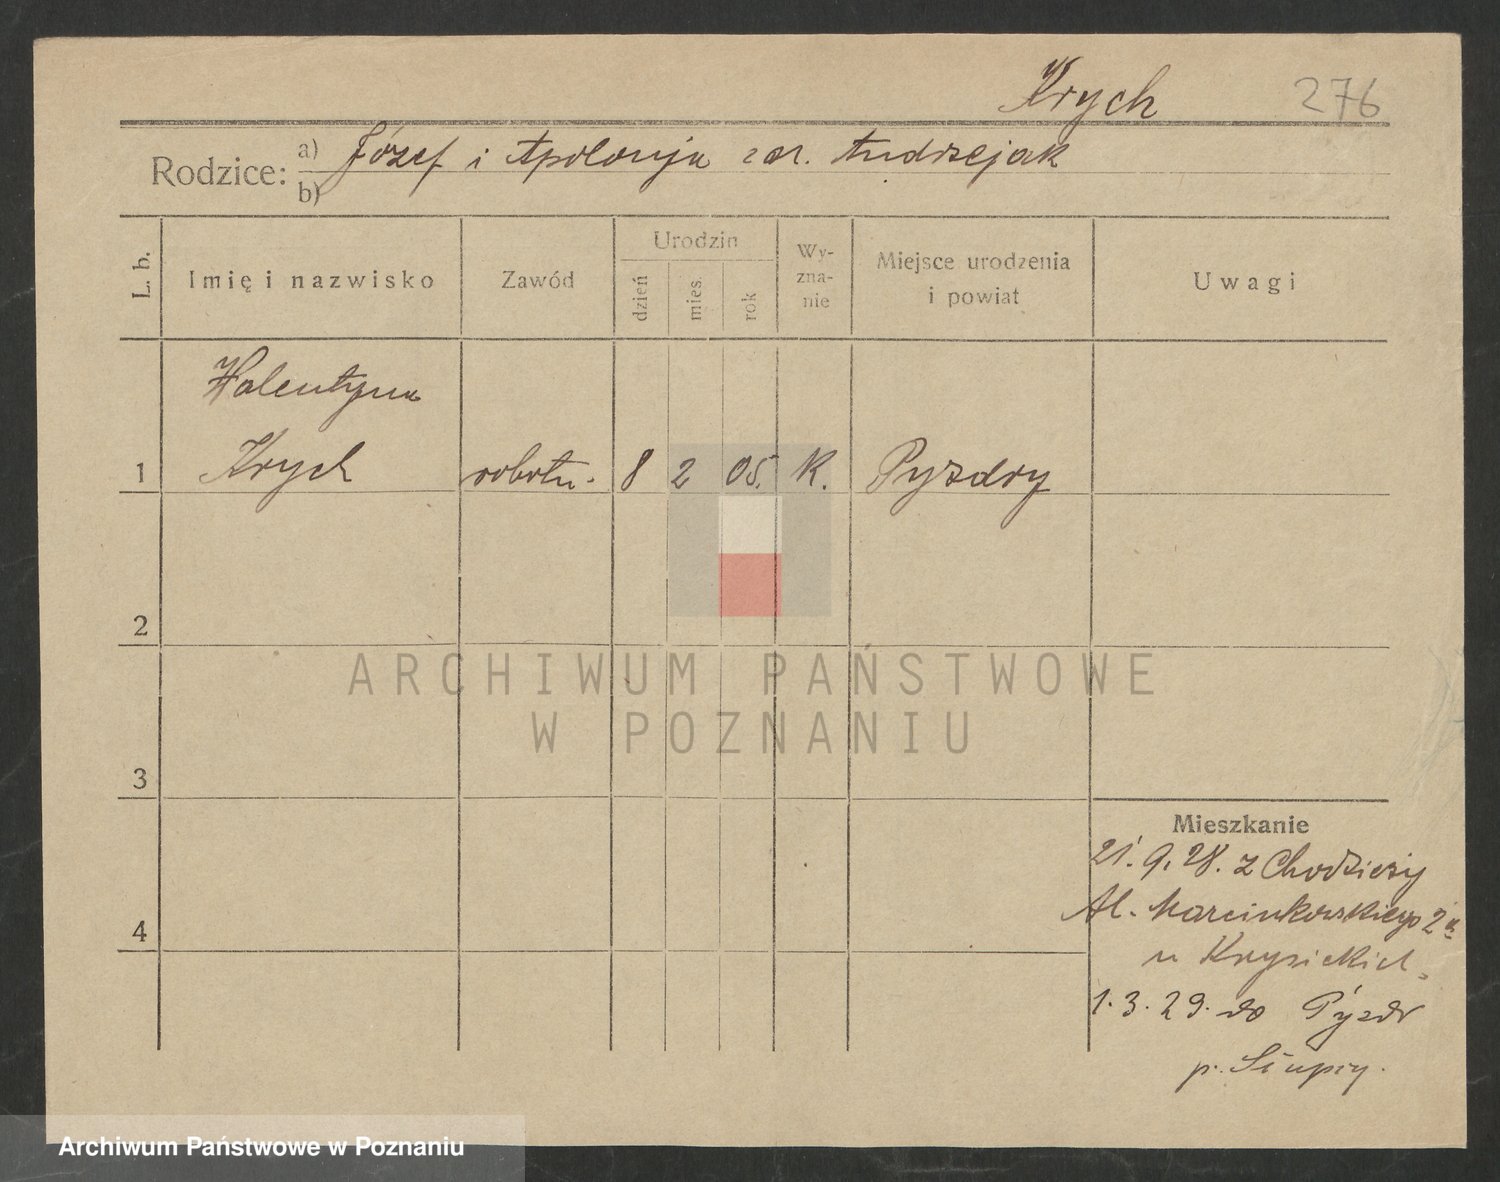 Krych 276
Rodzice: a) Józef i Apolonja zar. Andrzejak
b)
L. b. Imię i nazwisko Zawód Urodzin dzień mies. rok Wy-zna-nie Miejsce urodzenia i powiat Uwagi
Walentyna
1 Krych robotn. 8 2 05. K. Pyzdry
2
ARCHIWUM PAŃSTWOWE
W POZNANIU
3
Mieszkanie
21. 9. 28. z Chodzieży
Al. Marcinkowskiego 2a
4
u
1. 3. 29. do Pyzdr
p.
Archiwum Państwowe w Poznaniu